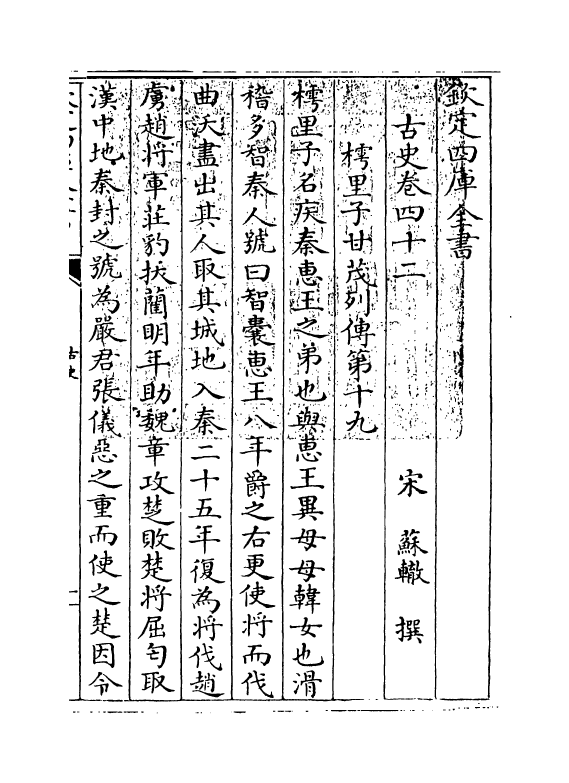 欽定四庫全書
古史卷四十二
宋 蘇轍 撰
樗里子甘茂列傳第十九
樗里子名疾秦惠王之弟也與惠王異母母韓女也滑
稽多智秦人號曰智囊惠王八年爵之右更使將而伐
曲沃盡出其人取其城地入秦二十五年復為將伐趙
虜趙將軍莊豹拔藺明年助魏章攻楚敗楚將屈匄取
漢中地秦封之號為嚴君張儀惡之重而使之楚因令
古史